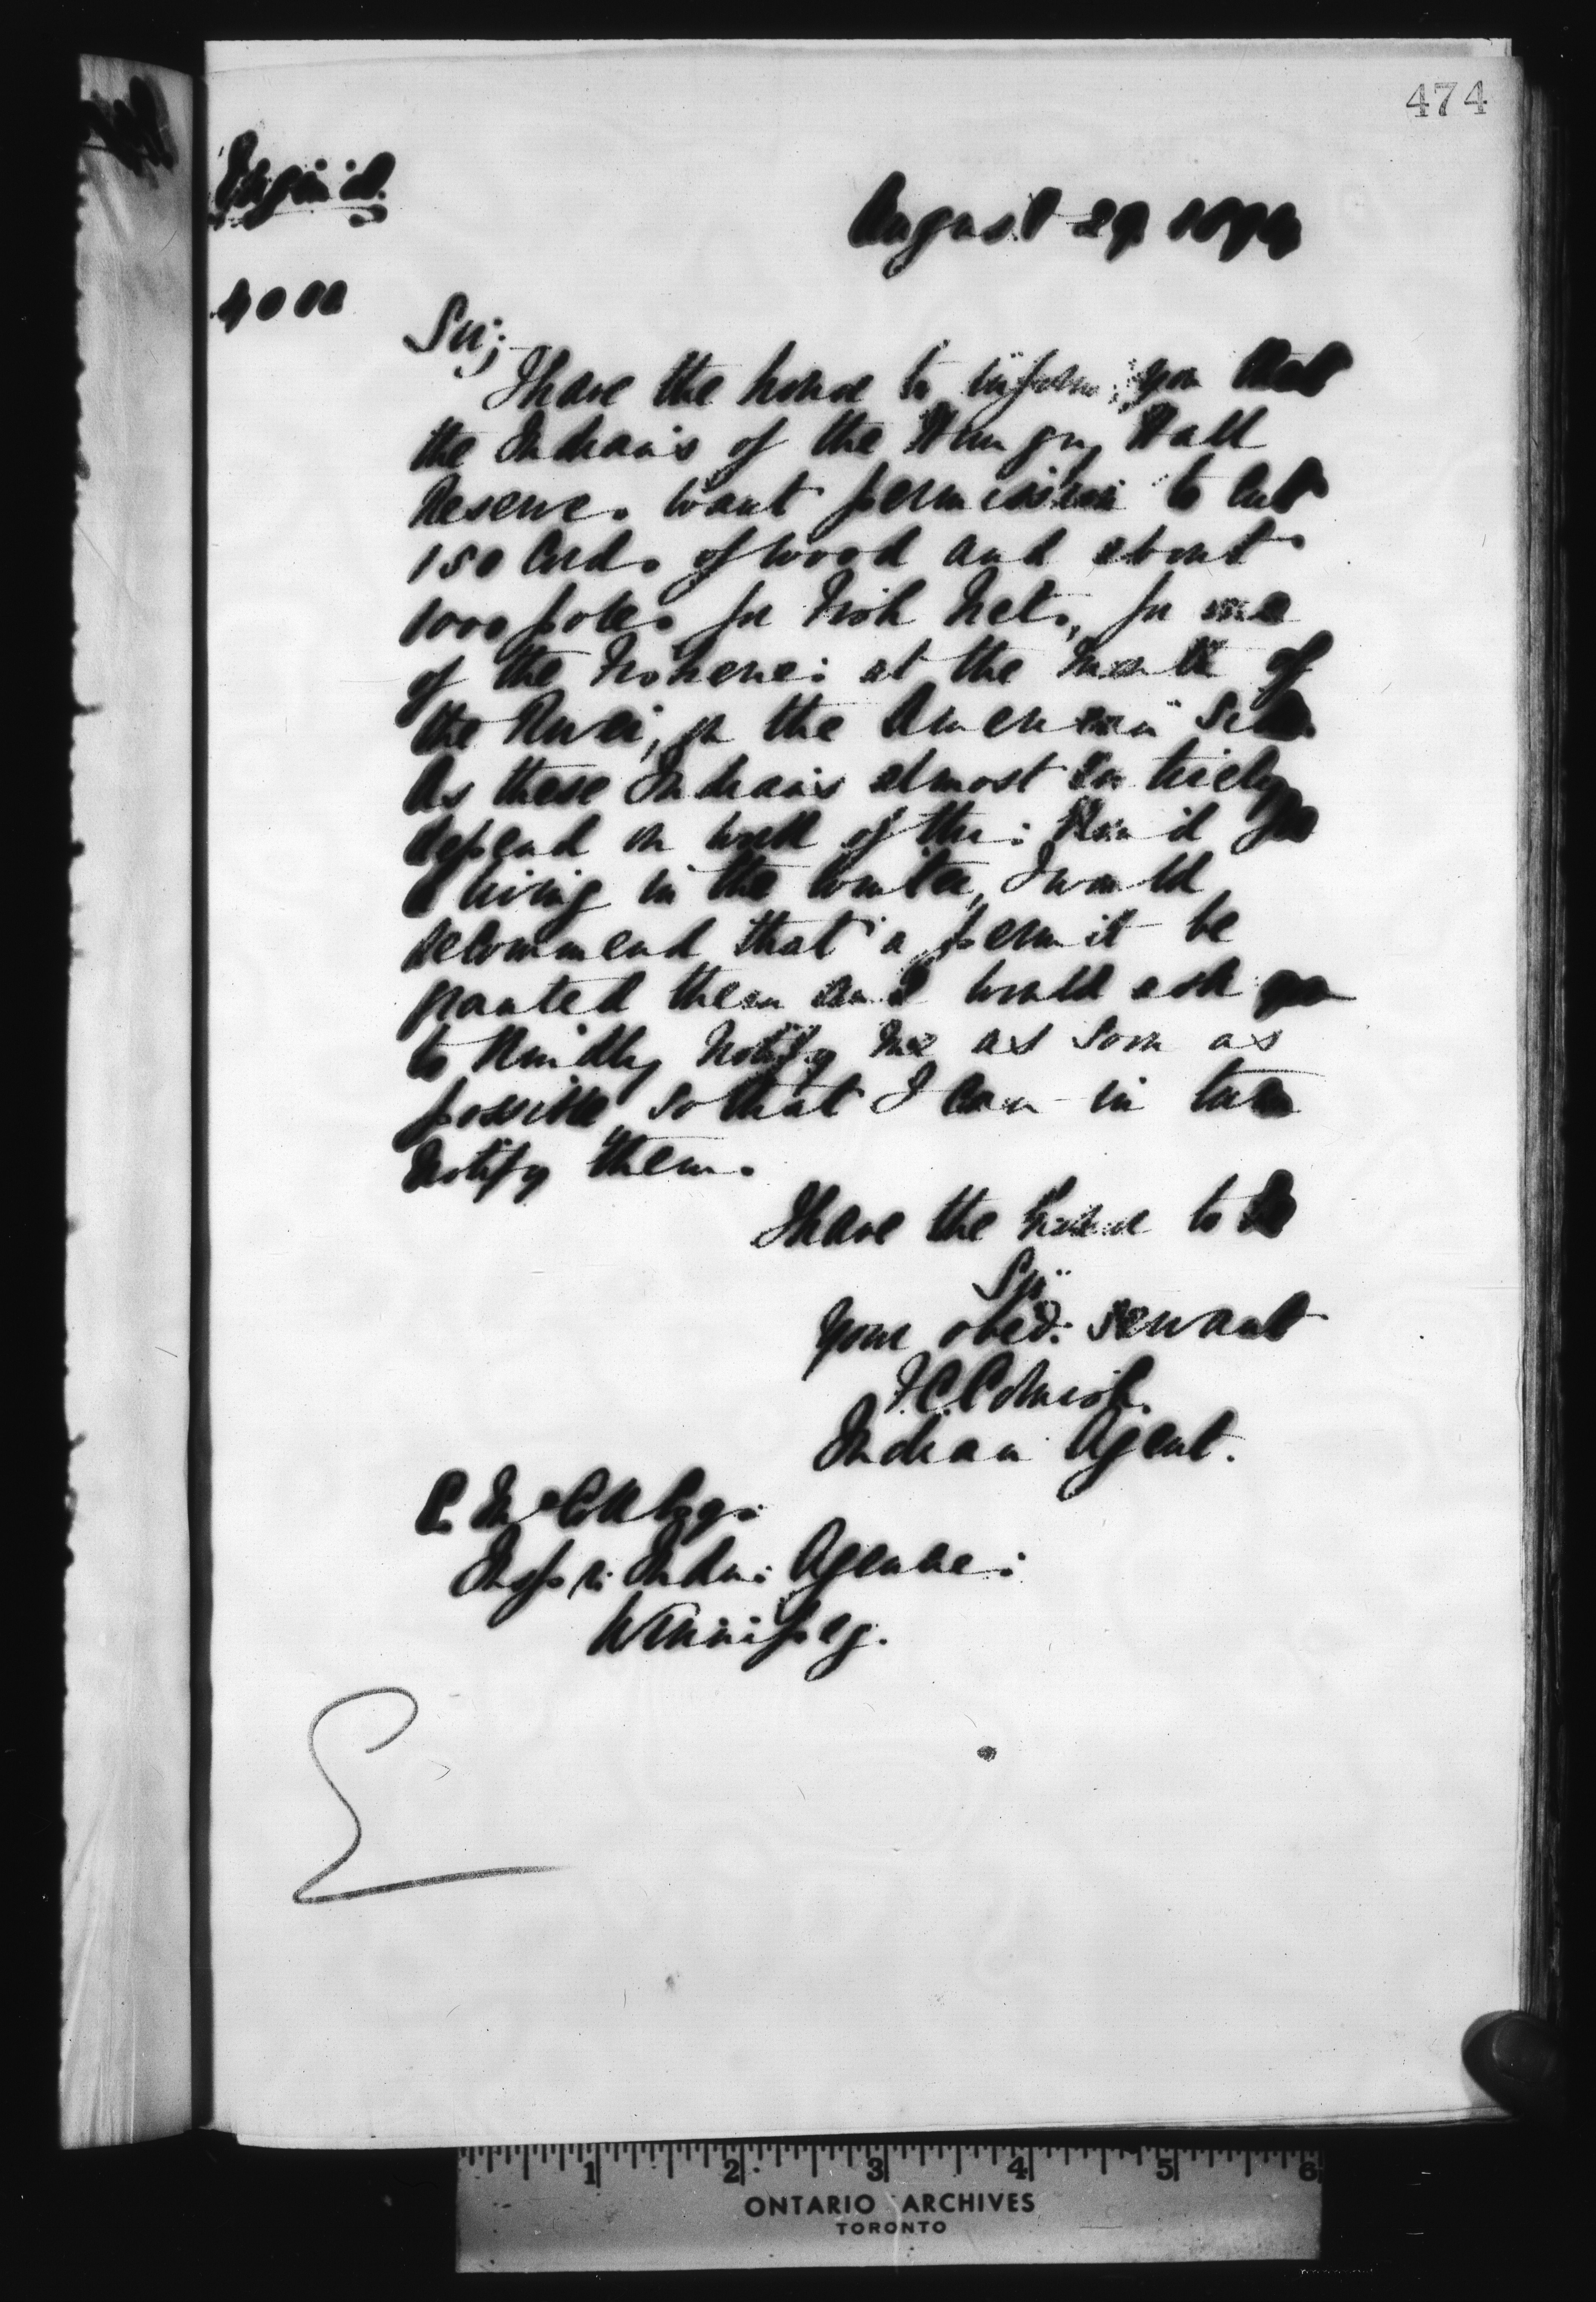 474
August 29 1894
Sir;
I have the honor to inform you that
the Indians of the Hungry Hall
Reserve. want permission to cut
150 Cords of wood and about
1000 poles for Fish Nets, for one
of the Fisheries at the mouth of
the River, on the American Side.
As these Indians almost entirely
depend on work of this kind for
a living in the winter, I would
recommend that a permit be
granted them and would ask you
to kindly notify me as soon as
possible so that I can in turn
notify them.
I have the honor to be
Sir
Your obed: servant
F.C. Cornish.
Indian Agent.
E. McColl Esq:
Inspr: Indn: Agencies:
Winnipeg.
1 2 3 4 5 6
ONTARIO ARCHIVES
TORONTO